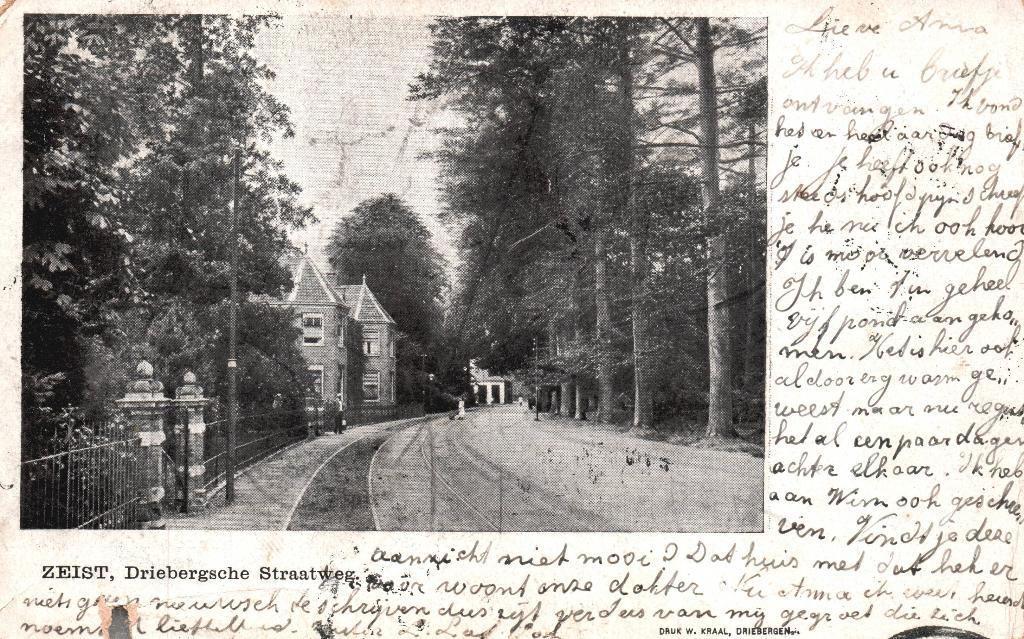 Lieve Anna
Ik heb u briefje
ontvangen. Ik vond
het een heel aardig brief
je. Je heeft ook nog
steeds hoofdpijn schreef
je he nu ich ook hoor
't is moor vervelend
Ik ben 't in geheel
vijf pond aangeko„
men. Het is hier ook
al door erg warm ge„
weest maar nu regent
het al een paar dagen
achter elkaar. Ik heb
aan Wim ook geschre
ven. Vindt je deze
aanzicht niet mooi? Dat huis met dat hek er
voor woont onze dokter Nu Anna ik weet heusch
niets geen nieuwsch te schrijven dus zijt verders van mij gegroet die zich
noemt liefheb
ZEIST, Driebergsche Straatweg.
DRUK W. KRAAL, DRIEBERGEN.